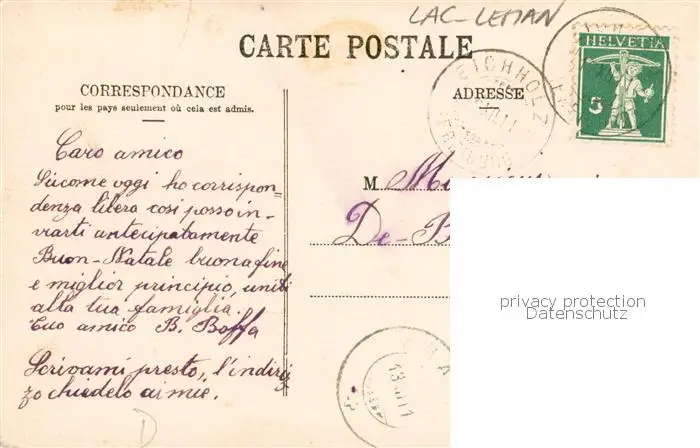 LAC-LEMAN
CARTE POSTALE
HELVETIA
5
EICHHOLZ
CORRESPONDANCE
pour les pays seulement où cela est admis.
ADRESSE
Caro amico
Siccome oggi ho corrispon=
denza libera così posso in-
viarti antecipatamente
Buon-Natale buona fine
e miglior principio, uniti
alla tua famiglia.
Tuo amico B. Boffa
Scrivami presto, l'indiriz
zo chiedelo ai miei.
M.
De-B
13 XII 11
D
privacy protection
Datenschutz